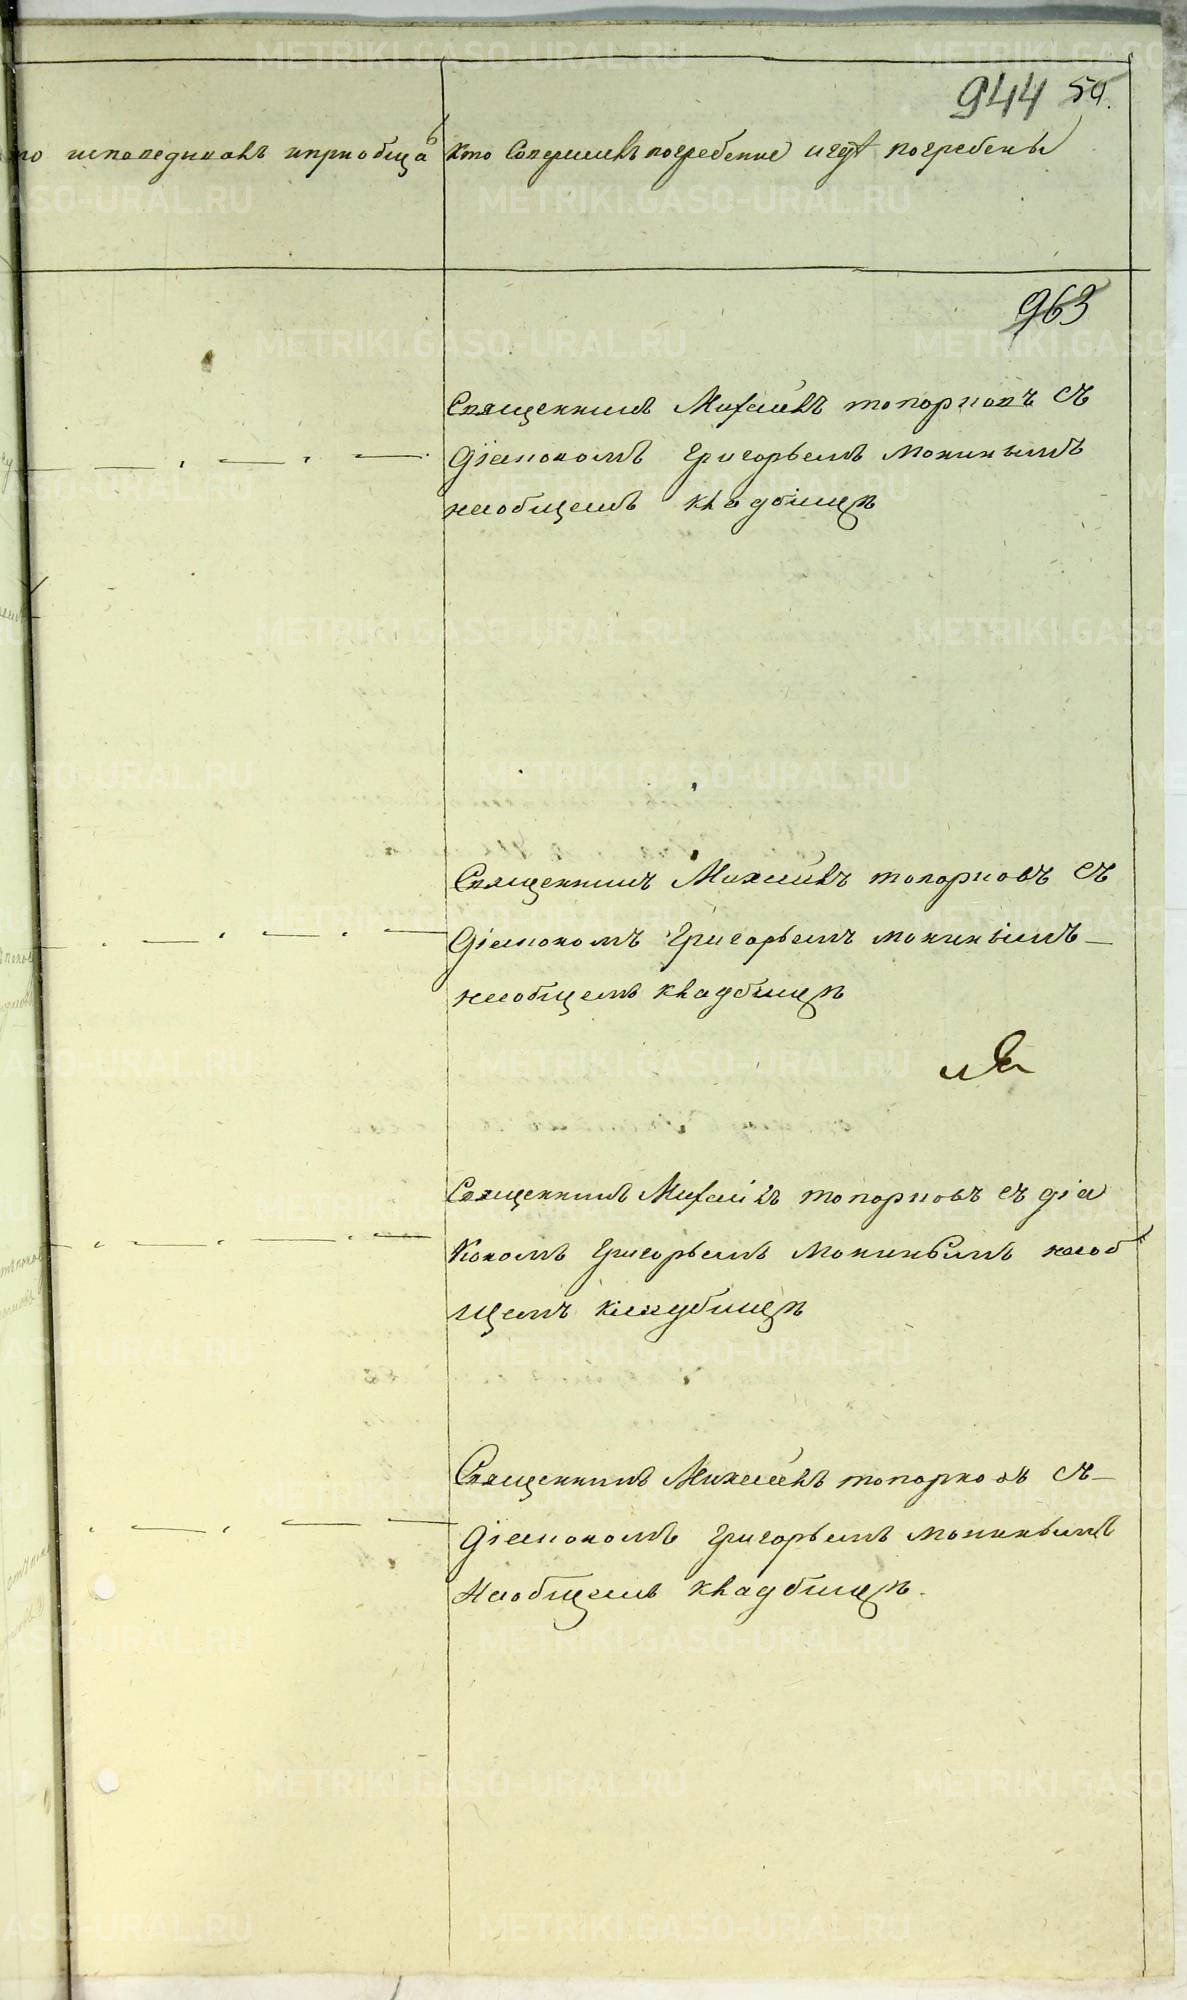 944 59.
то исповедывалъ и приобщалъ
Кто Совершилъ погребение и где погребены
963
Священникъ Михаилъ топорковъ съ
діакономъ Григорьемъ Мокинымъ
на общемъ кладбищѣ
Священникъ Михаилъ топорковъ съ
діакономъ Григорьемъ мокинымъ
на общемъ кладбищѣ
Священникъ Михаилъ топорковъ съ діа
кономъ Григорьемъ Мокинымъ на об
щемъ кладбищѣ
Священникъ Михаилъ топорковъ съ
діакономъ Григорьемъ мокинымъ
На общемъ кладбищѣ.
METRIKI.GASO-URAL.RU